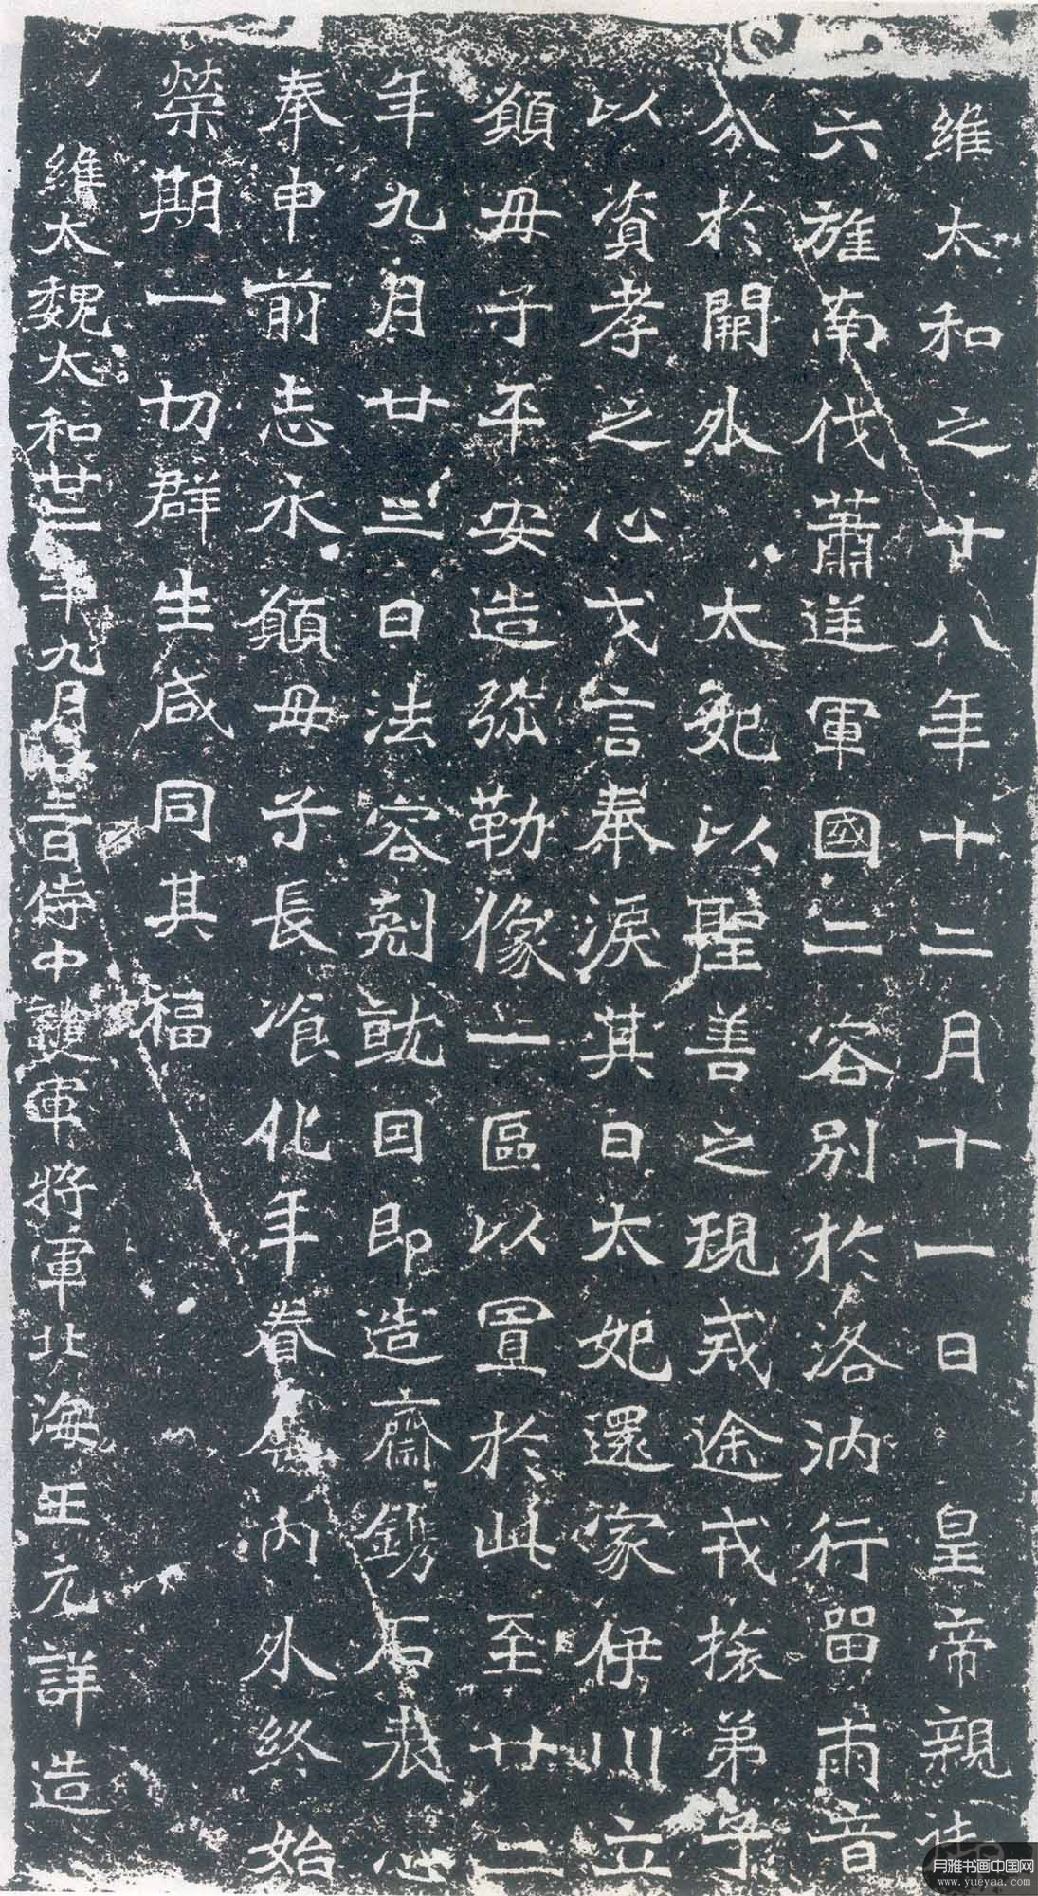 維太和之廿八年十二月十一日皇帝親御
六旌南伐蕭逆軍國二容別於洛汭行留兩音
分於關外太妃以聖善之規戒途戎旅弟子
以資孝之心戈言奉淚其日太妃還家伊川立
願母子平安造弥勒像一區以置於此至廿二
年九月廿三日法容剋就因即造齋鐫石表心
奉申前志永願母子長飡化年眷内外終始
榮期一切群生咸同其福
維太魏太和廿二年九月廿三日侍中護軍將軍北海王元詳造
月雅书画中国网
www.yueyaa.com